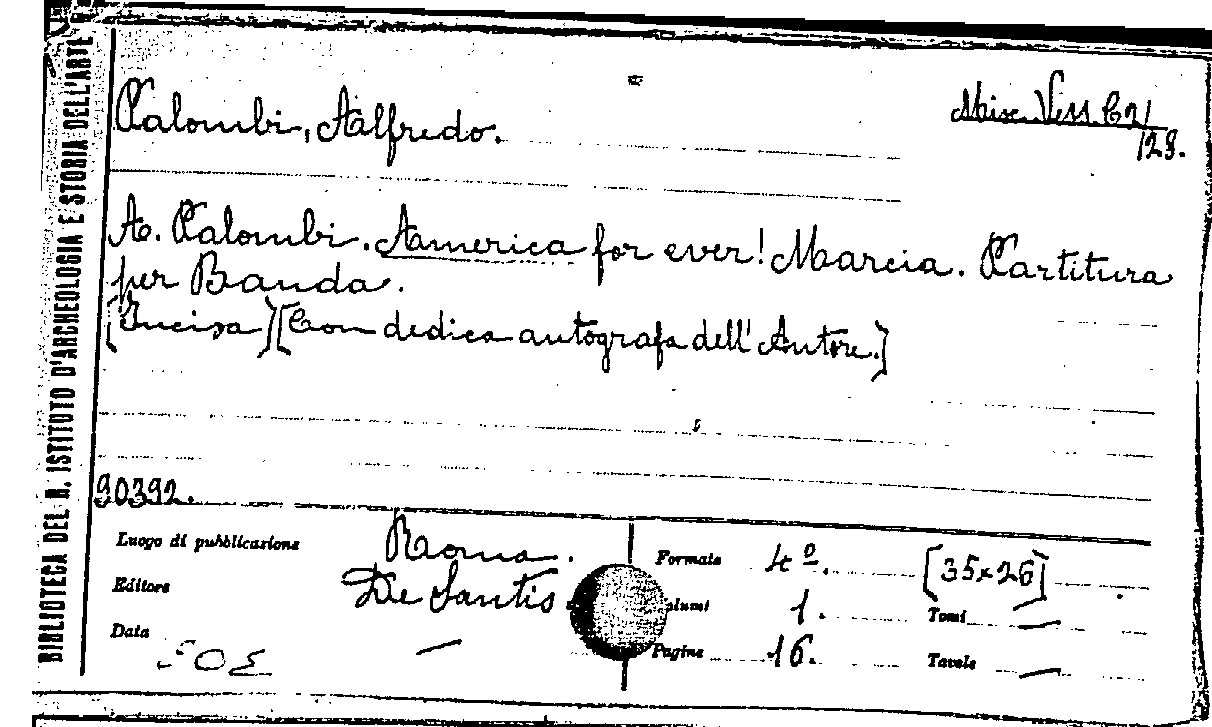 BIBLIOTECA DEL R. ISTITUTO D'ARCHEOLOGIA E STORIA DELL'ARTE
Palombi, Alfredo.
Misc. Vess. C 21/
129.
A. Palombi. America for ever! Marcia. Partitura
per Banda.
[Incisa] [Con dedica autografa dell'Autore.]
90392.
Luogo di pubblicazione Roma. Formato 4º. [35x26]
Editore De Santis lumi 1. Tomi —
Data — Pagine 16. Tavole —